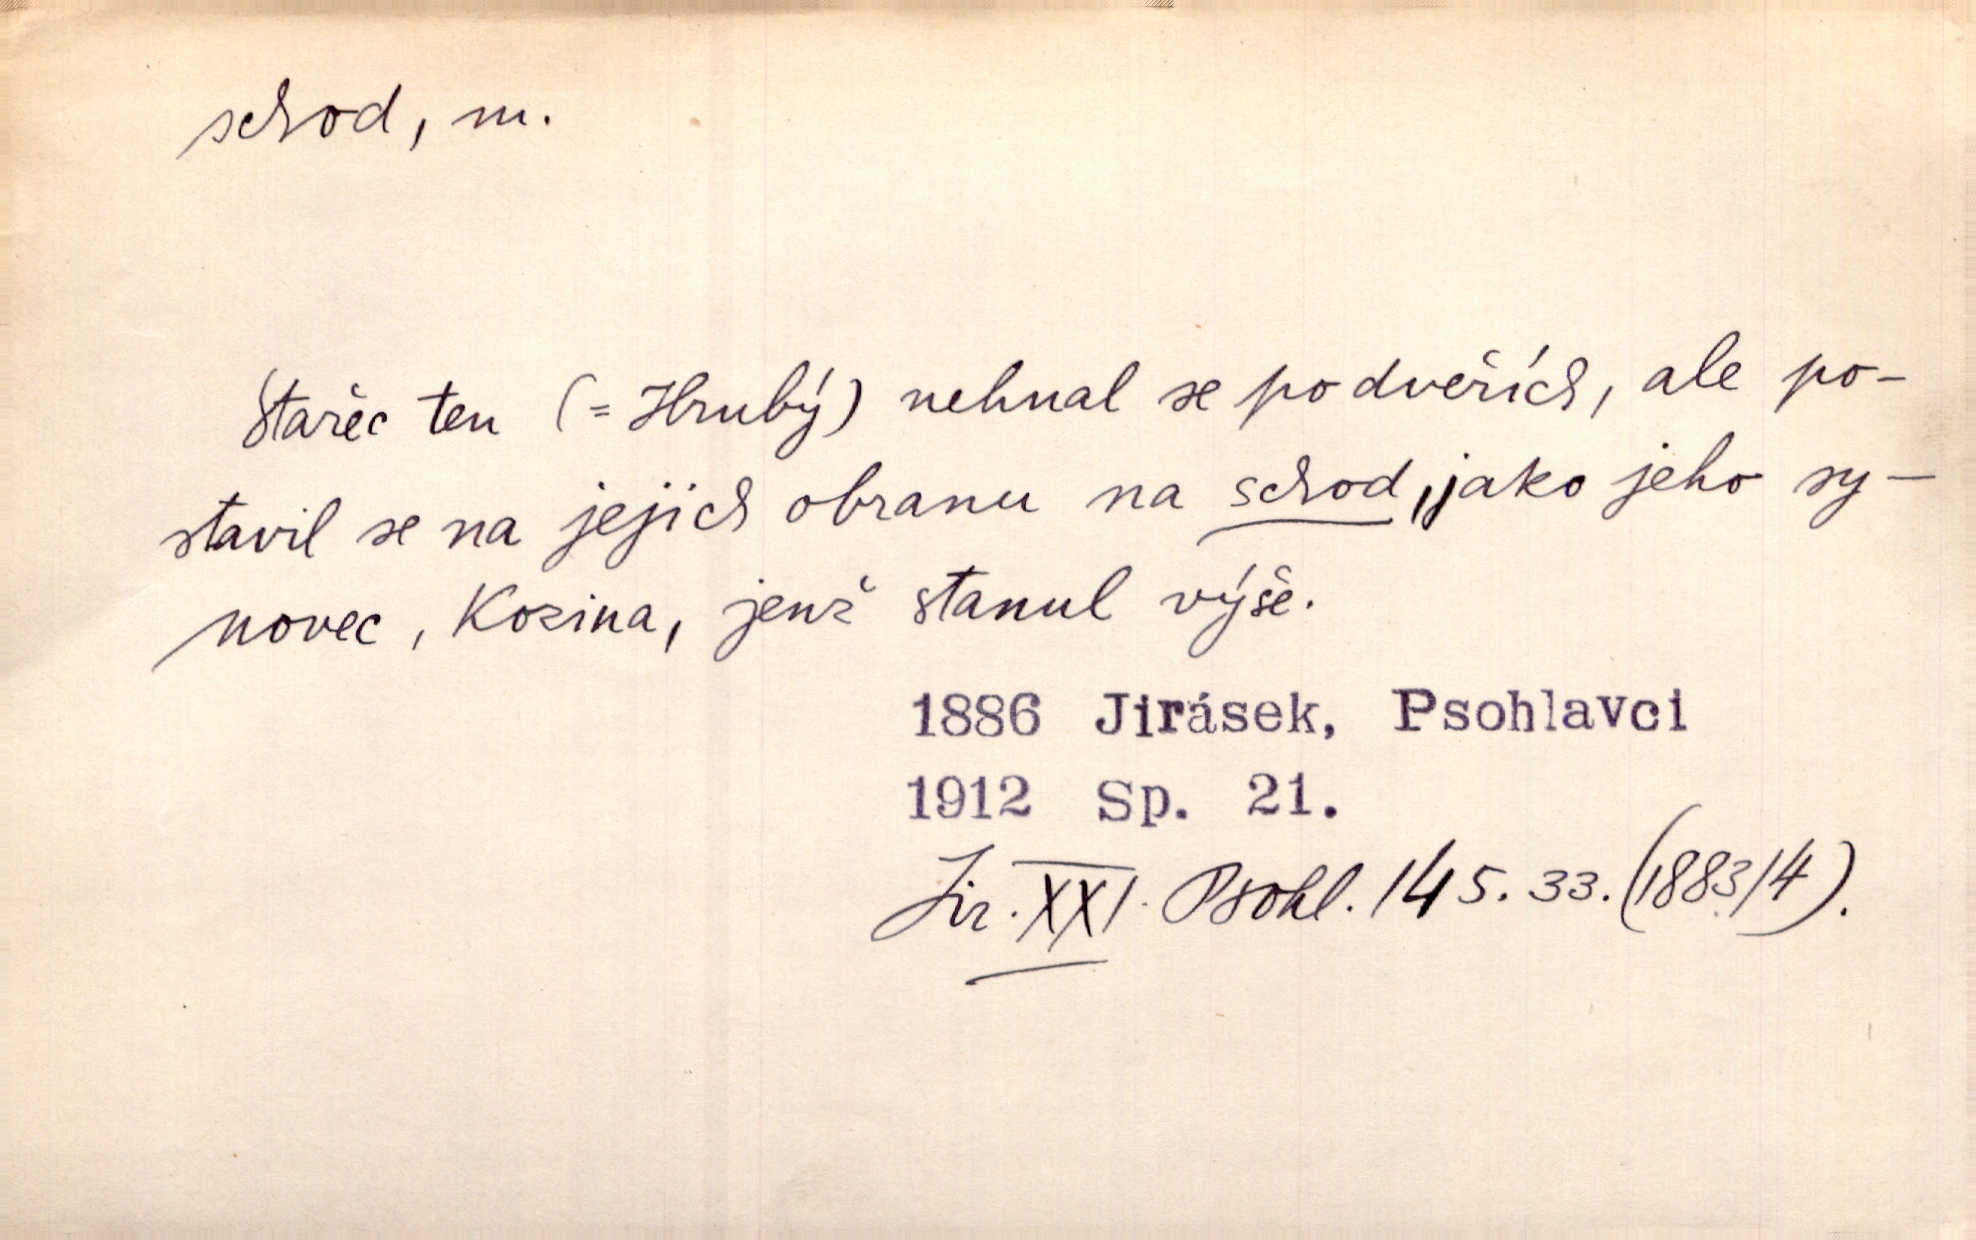 schod, m.
Stařec ten (= Hrubý) nehnal se po dveřích, ale po-
stavil se na jejich obranu na schod, jako jeho sy-
novec, Kozina, jenž stanul výše.
1886 Jirásek, Psohlavci
1912 Sp. 21.
Jir. XXI. Psohl. 145. 33. (1883/4).